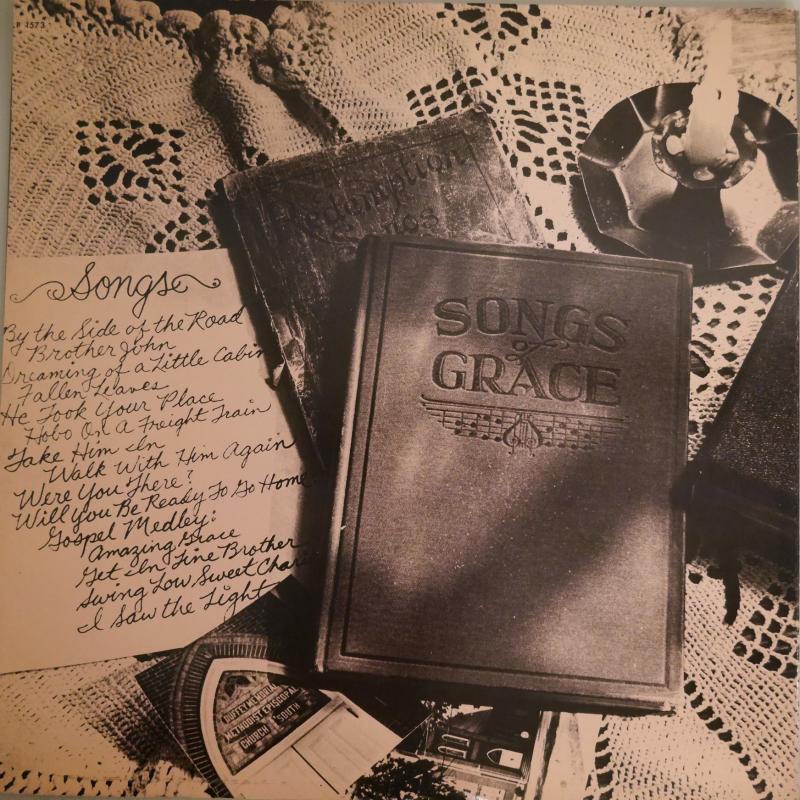 1573
Redemption
Songs
SONGS
of
GRACE
Songs
By the Side of the Road
Brother John
Dreaming of a Little Cabin
Fallen Leaves
He Took Your Place
Hobo On A Freight Train
Take Him In
Walk With Him Again
Were You There?
Will you Be Ready To Go Home
Gospel Medley:
Amazing Grace
Get In Line Brother
Swing Low Sweet Char
I Saw the Light
METHODIST EPISCOPAL
CHURCH SOUTH